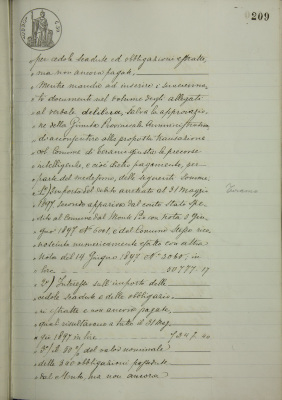 209
per cedole scadute ed obbligazioni estratte,
ma non ancora pagate,
Mentre manda ad inserire i summenzionati
documenti nel volume degli allegati
al verbale, delibera, salva la approvazio
ne della Giunta Provinciale Amministrativa
di acconsentire alla proposta transazione
col Comune di Teramo giusta le precorse
intelligenze, e cioè dietro pagamento, per
parte del medesimo, delle seguenti somme
1°) Importo del debito arretrato al 31 Maggio
Teramo
1897, secondo apparisce dal conto stato spe
dito al Comune dal Monte Pio con nota 2 Giu
gno 1897 N° e dal Comune stesso rico
nosciuto numericamente esatto con altra
Nota del 14 Giugno 1897 N° 2060, in
lire
2°) Interesse sull'importo delle
cedole scadute e delle obbligazio
ni estratte e non ancora pagate,
quali risultavano a tutto il 31 Mag
gio 1897 in lire
3°) Il 80 % del valore nominale
delle obbligazioni possedute
dal Monte, ma non ancora